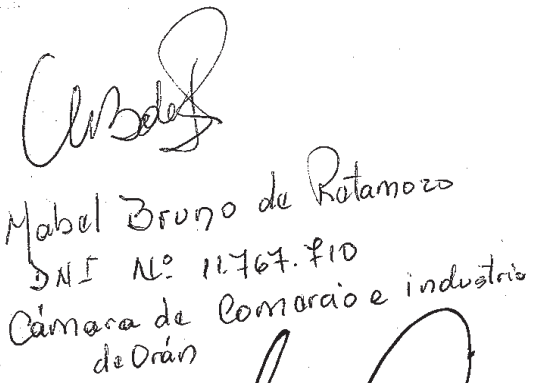 Mabel Bruno de Retamozo
DNI Nº 11.767.710
Cámara de Comercio e industria
de Orán